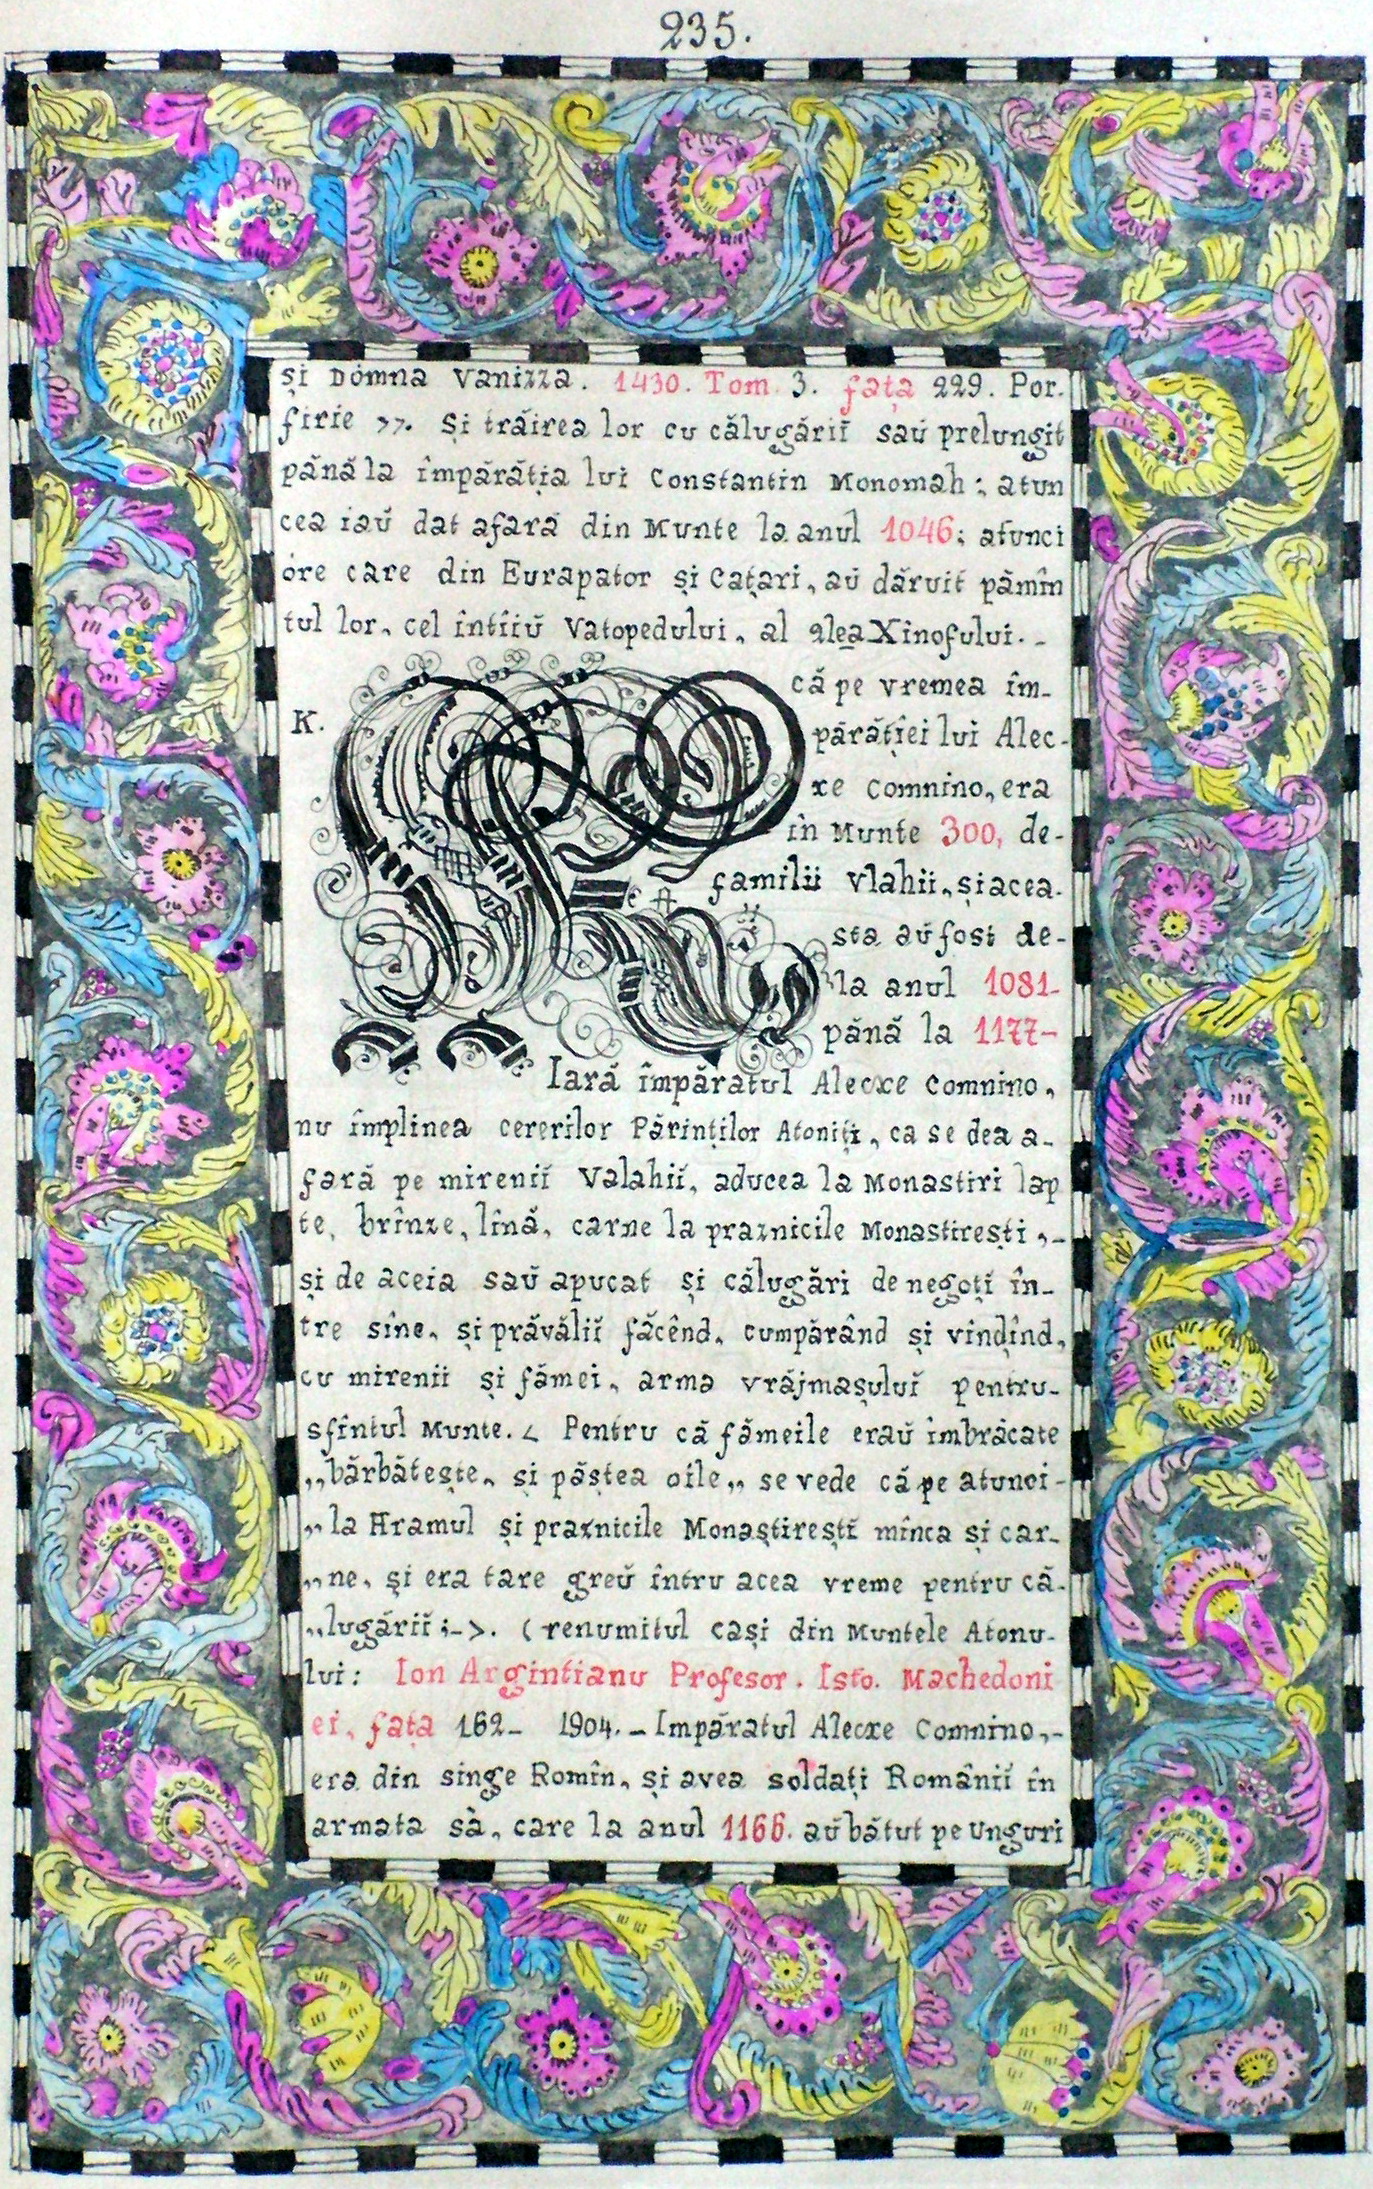 235.
și Domna Vanizza. 1430. Tom. 3. fața 229. Por.
firie >>. Și trăirea lor cu călugării saŭ prelungit
până la împărăția lui Constantin Monomah; atun
cea iaŭ dat afară din Munte la anul 1046; atunci
óre care din Eurapator și Cațari, aŭ dăruit pămîn
tul lor, cel întîiŭ Vatopedului, al 2lea Xinofului. -
că pe vremea îm-
K.
părăției lui Alec-
xe Comnino, era
în Munte 300, de-
familii Vlahii, și acea.
sta aŭ fost de-
la anul 1081-
până la 1177-
Iară împăratul Alecxe Comnino,
nu împlinea cererilor Părinților Atoniți, ca se dea a-
fară pe mirenii Valahiĭ, aducea la Monastiri lap
te, brînze, lînă, carne la praznicile Monastirești,-
și de aceia saŭ apucat și călugări de negoți în-
tre sîne, și prăvăliĭ făcênd, cumpărând și vindînd,
cu mirenii și fămei, arma vrăjmașuluĭ pentru-
sfîntul Munte. < Pentru că fămeile eraŭ îmbrăcate
„bărbătește, și păștea oile„ se vede că pe atunci-
„la Hramul și praznicile Monaștireștĭ mînca și car-
„ne, și era tare greŭ întru acea vreme pentru că-
„lugăriĭ;->. (renumitul casi din Muntele Atonu-
lui: Ion Argintianu Profesor. Isto. Machedoni
ei, fața 162- 1904. - Impăratul Alecxe Comnino,-
era din singe Romîn, și avea soldați Româniĭ în
armata sà, care la anul 1166. aŭ bătut pe unguri